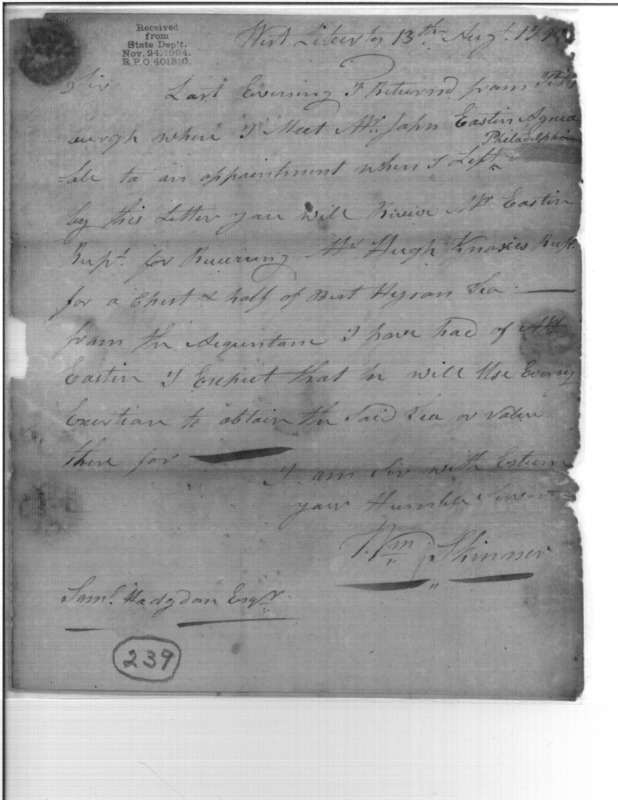 Received
from
State Dep't.
Nov. 24, 1894.
R.P.O. 401810.
West Liberty 13th Augt. 17
Sir Last Evening I Returnd from Pitts
burgh where I Meet Mr. John Eastin Agrea
Philadelphia
ble to an appointment when I Left
by this Letter you will Riceive Mr Eastin
Rcpt. for Receiving Mr Hugh Knoxes Rcpt.
for a Chest & half of Best Hyson Tea
from the Acquintanc I have had of Mr
Eastin I Expect that he will Use Every
Exertion to obtain the Said Tea or value
there for
I am Sir with Esteem
your Humble Servnt
Wm Skinner
Saml. Hodgdon Esqr.
239